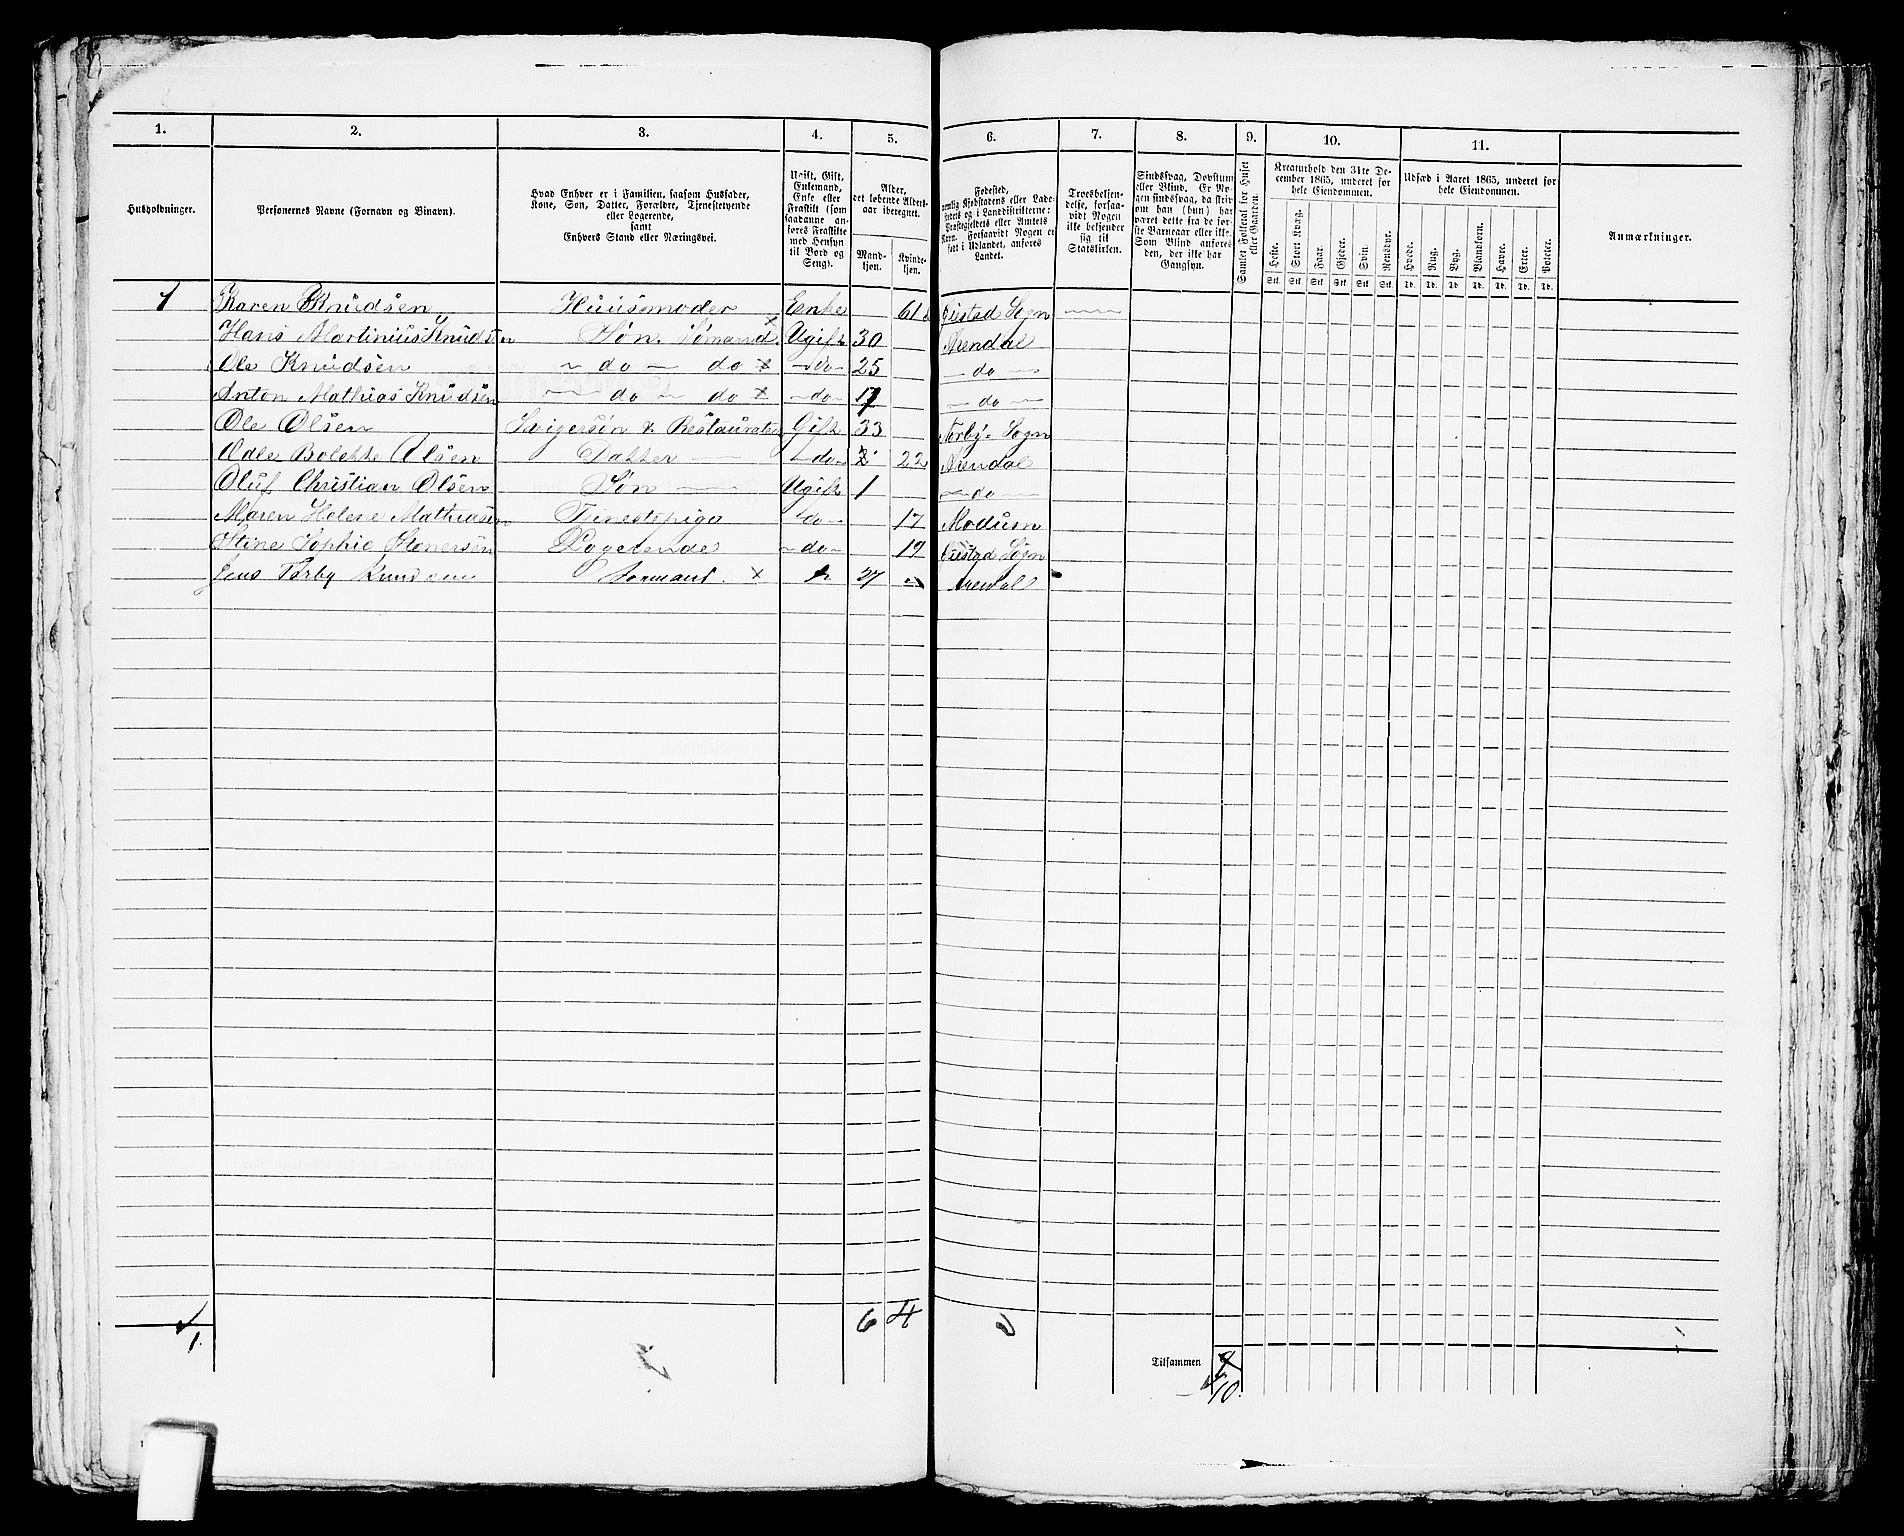 1. 2. 3. 4. 5. 6. 7. 8. 9. 10. 11.
Husholdninger.
Personernes Navne (Fornavn og Binavn).
Hvad Enhver er i Familien, saasom Husfader,
Kone, Søn, Datter, Forældre, Tjenestetyende
eller Logerende,
samt
Enhvers Stand eller Næringsvei.
Ugift, Gift,
Enkemand,
Enke eller
Fraskilt (som
saadanne an-
føres Fraskilte
med Hensyn
til Bord og
Seng).
Alder,
det løbende Alders-
aar iberegnet.
Mand-
kjøn.
Kvinde-
kjøn.
Fødested,
nemlig Kjøbstadens eller Lade-
stedets og i Landdistrikterne:
Præstegjeldets eller Amtets
Navn. Forsaavidt Nogen er
født i Udlandet, anføres
Landet.
Troesbekjen-
delse, forsaa-
vidt Nogen
ikke bekjender
sig til
Statskirken.
Sindssvag, Døvstum
eller Blind. Er No-
gen sindssvag, da skriv
om han (hun) har
været dette fra de før-
ste Barneaar eller ikke.
Som Blind anføres
den, der ikke har
Gangsyn.
Samlet Folketal for Huset
eller Gaarden.
Kreaturhold den 31te De-
cember 1865, underet for
hele Eiendommen.
Heste. Stort Kvæg. Faar. Gjeder. Svin. Rensdyr.
Stk. Stk. Stk. Stk. Stk. Stk.
Udsæd i Aaret 1865, underet for
hele Eiendommen.
Hvede. Rug. Byg. Blandkorn. Havre. Erter. Poteter.
Td. Td. Td. Td. Td. Td. Td.
Anmærkninger.
1 Karen Knudsen Huusmoder Enke 61 Øiestad Sogn
Hans Martinius Knudsen Søn. Sømand x Ugift 30 Arendal
Ole Knudsen do do x do 25 do
Anton Mathias Knudsen do do x do 17 do
Ole Olsen Svigersøn & Restauratør Gift 33 Sogn
Bolette Olsen Datter do 22 Arendal
Oluf Christian Olsen Søn Ugift 1 do
Maren Helene Mathiasen Tjenestepige do 17 Modum
Stine Sophie Logerende do 19 Øiestad Sogn
Jens Tørby Knudsen Sømand x 27 Arendal
1. 6 4
Tilsammen
10.